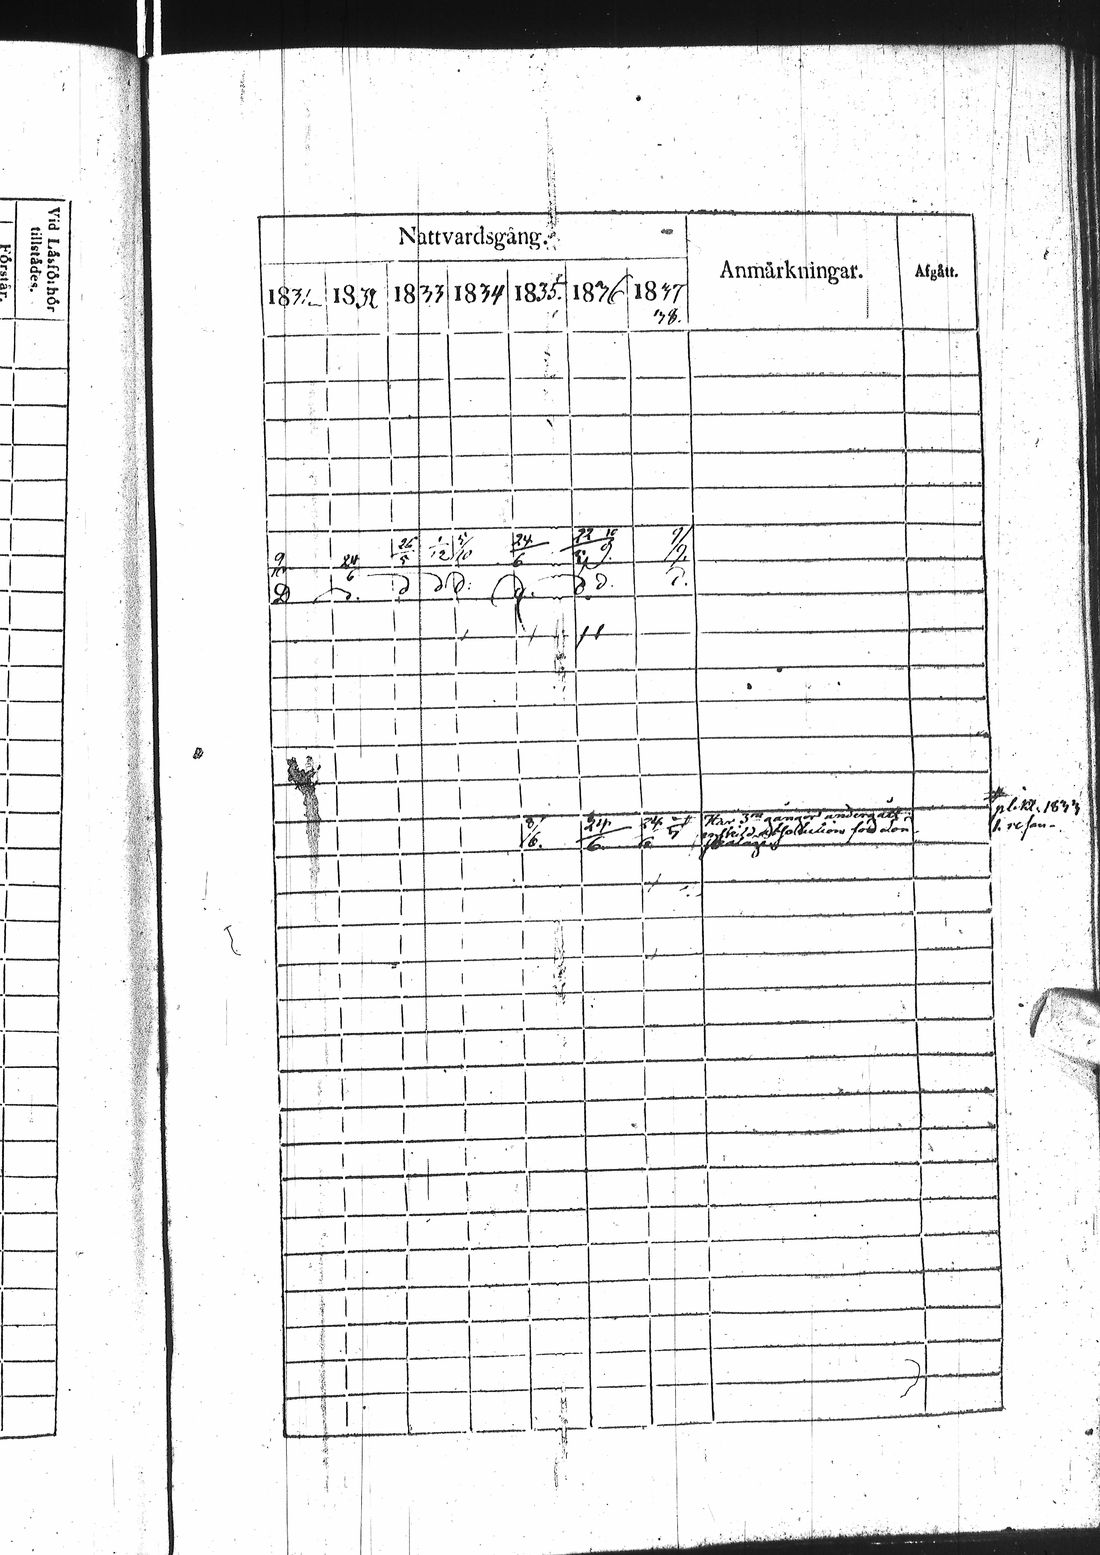 Vid Läsförhör
tillstädes.
Förstår.
Nattvardsgång.
Anmärkningar.
Afgått.
1831 1832 1833 1834 1835 1836 1837
38.
9/10 24/6 26/5 1/12 5/10 24/6 22/5 10/9 9/7
D d. d d d. d. d d. d.
8/6. 24/6. 24/6
Har 3ne gånger undergått
enskild Absolution för lön-
pl.kt. 1833